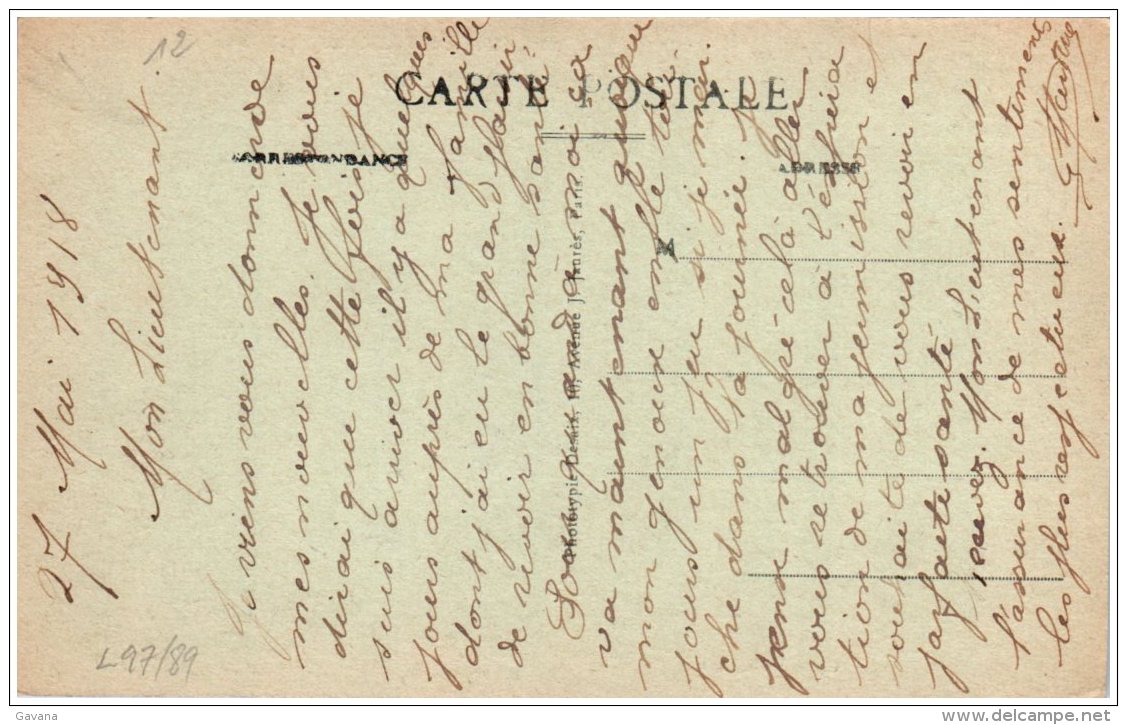 12
CARTE POSTALE
CORRESPONDANCE
ADRESSE
M
Phototypie Desaix, 10, Avenue J. Jaurès, Paris.
27 Mai 1918
Mon Lieutenant
Je viens vous donner de
mes nouvelles. Je vous
dirai que cette fois je
suis arriver il y a quelques
jours auprès de ma famille
dont j'ai eu le grand plaisir
de revoir en bonne santé
Soignand à moi ça
va maintenant quoique
mon genoux enfle tou-
jours un peu si je mar-
che dans la journée. Je
pense malgré cela aller
vous retrouver à l'expira
tion de ma permission et
souhaite de vous revoir en
parfaite santé
recevez Mon Lieutenant
l'assurance de mes sentiments
les plus respectueux.
L 97/89
Gavana
delcampe.net